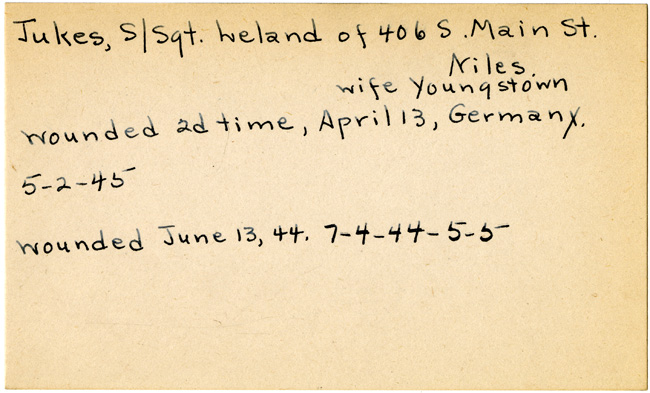 Jukes, S/Sgt. Leland of 406 S. Main St.
Niles.
wife Youngstown
wounded 2d time, April 13, Germany.
5-2-45
wounded June 13, 44. 7-4-44-5-5